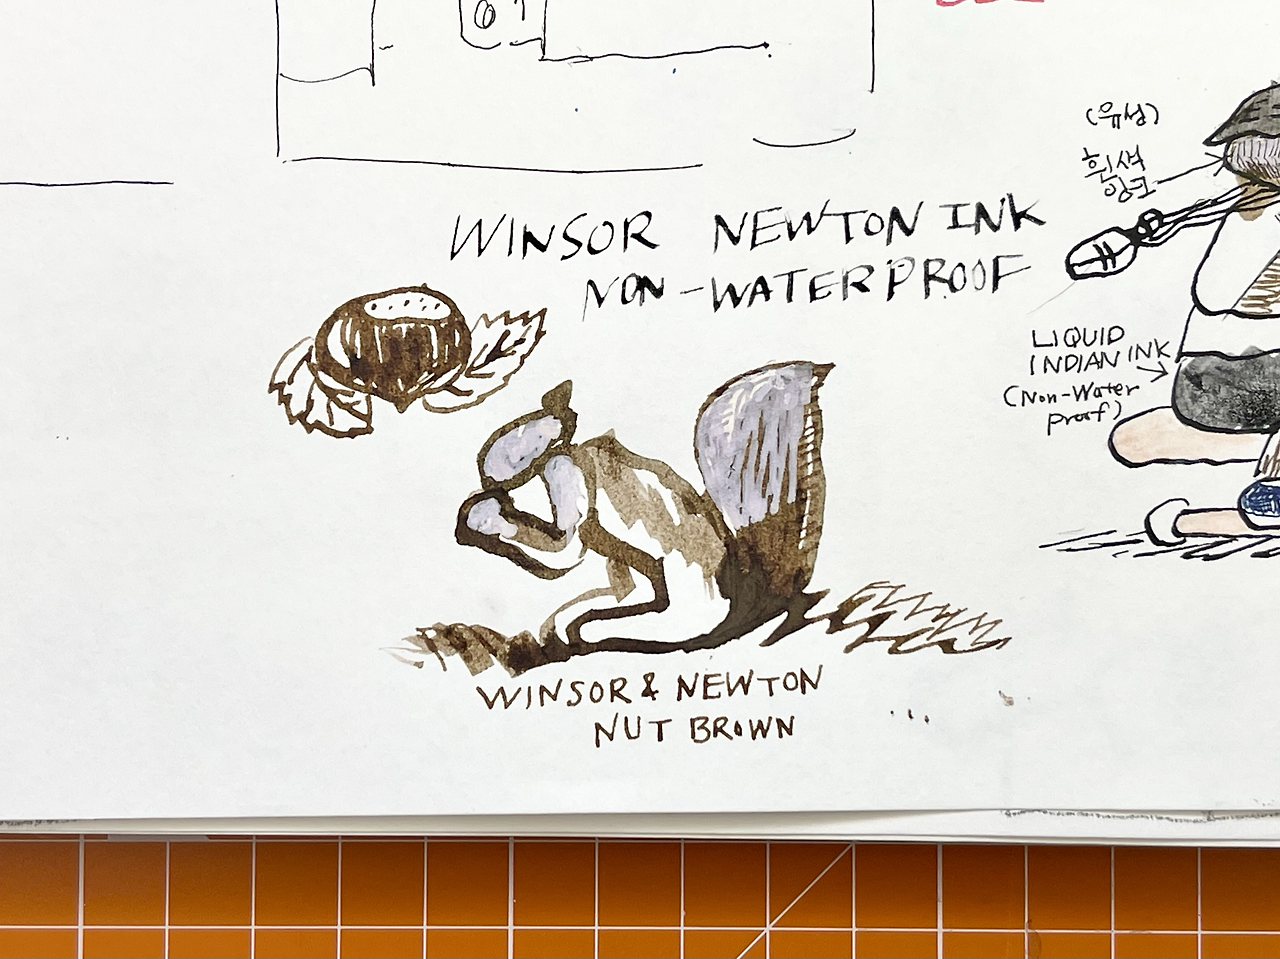 WINSOR NEWTON INK
NON-WATERPROOF
WINSOR & NEWTON
NUT BROWN
(유성)
흰색
잉크
LIQUID
INDIAN INK
(Non-Water
proof)